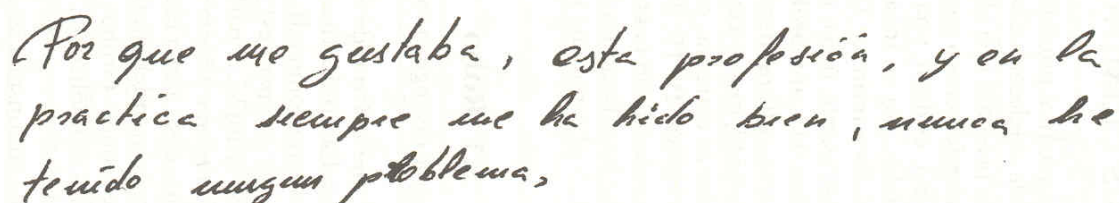 Por que me gustaba, esta profesión, y en la
practica siempre me ha hido bien, nunca he
tenido ningun problema,